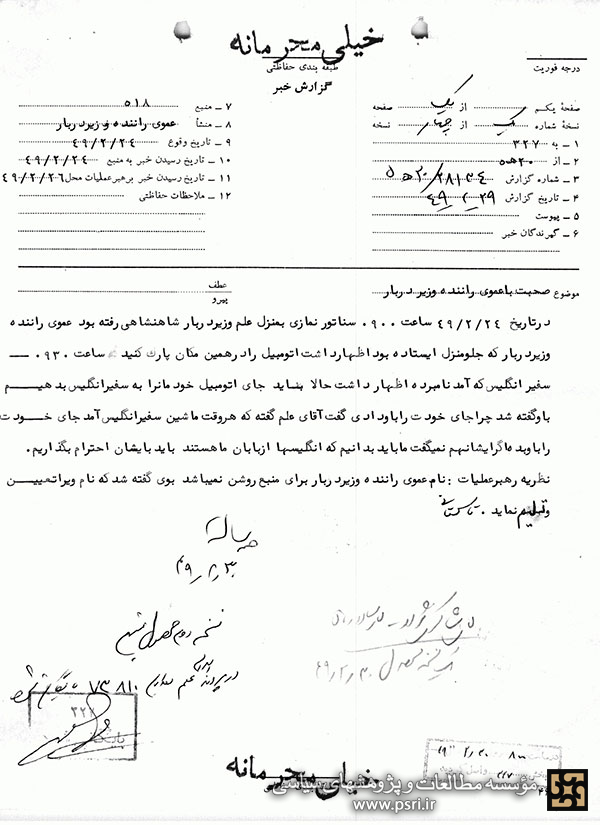 خیلی محرمانه
طبقه بندی حفاظتی
گزارش خبر
درجه فوریت
صفحه یکم از یک صفحه
نسخه شماره یک از چهار نسخه
۱ ـ به ۳۲۷
۲ ـ از ۲۰ هـ ۵
۳ ـ شماره گزارش
۴ ـ تاریخ گزارش ۴۹/۲/۲۹
۵ ـ پیوست
۶ ـ گیرندگان خبر
۷ ـ منبع ۵۱۸
۸ ـ منشأ عموی راننده وزیردربار
۹ ـ تاریخ وقوع ۴۹/۲/۲۴
۱۰ ـ تاریخ رسیدن خبر به منبع ۴۹/۲/۲۴
۱۱ ـ تاریخ رسیدن خبر برهبرعملیات محل ۴۹/۲/۲۶
۱۲ ـ ملاحظات حفاظتی
موضوع صحبت باعموی راننده وزیردربار
عطف
پیرو
درتاریخ ۴۹/۲/۲۴ ساعت ۰۹۰۰ سناتور نمازی بمنزل علم وزیردربار شاهنشاهی رفته بود عموی راننده
وزیردربار که جلومنزل ایستاده بود اظهارداشت اتومبیل رادرهمین مکان پارک کنید ساعت ۰۹۳۰
سفیر انگلیس که آمد نامبرده اظهار داشت حالا بیاید جای اتومبیل خودمانرا به سفیرانگلیس بدهیم
باوگفته شد چراجای خودت راباودادی گفت آقای علم گفته که هروقت ماشین سفیرانگلیس آمد جای خودت
راباوبده اگرایشانهم نمیگفت ماباید بدانیم که انگلیسها اربابان ماهستند باید بایشان احترام بگذاریم.
نظریه رهبرعملیات : نام عموی راننده وزیردربار برای منبع روشن نمیباشد بوی گفته شد که نام ویراتعیین
واعلام نماید .
نسخه دوم
در پرونده علم
۷۳۸۱۰
۳۲۷
خیلی محرمانه
مؤسسه مطالعات و پژوهشهای سیاسی
www.psri.ir